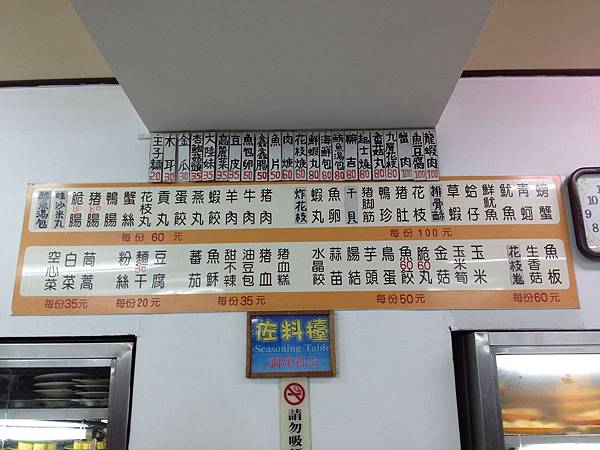 王子麵 20
木耳 30
金瓜 30
杏鮑菇 35
大陸妹 35
高麗菜 35
豆皮 35
魚包卵 50
魚片 50
肉燒 60
花枝燒 60
鮮蝦丸 80
海鮮包 80
鮪魚湯包 80
麻吉燒 80
起士燒 80
香菇丸 80
九層粄 80
蟹肉 100
魚豆腐 100
龍蝦肉 100
蛤沙米丸
脆腸
豬腸
鴨腸
蟹絲
花枝丸
貢丸
蛋餃
燕餃
蝦餃
羊肉
牛肉
豬肉
每份 60 元
炸花枝
蝦丸
魚卵
干貝
豬腳筋
鴨珍
豬肚
花枝
排骨酥
草蝦
蛤仔
鮮魷魚
魷魚
青蚵
螃蟹
每份 100 元
空心菜
白菜
茼蒿
每份35元
粉絲
麵干 30
豆腐
每份20元
蕃茄
魚酥
甜不辣
油豆包
豬血
豬血糕
每份35元
水晶餃
蒜苗
腸結
芋頭
鳥蛋
魚餃 60
脆菇 60
金菇
玉米筍
玉米
每份50元
花枝卷
生香菇
魚板
每份60元
佐料檯
Seasoning Table
調味料台
請勿吸
10
9
8